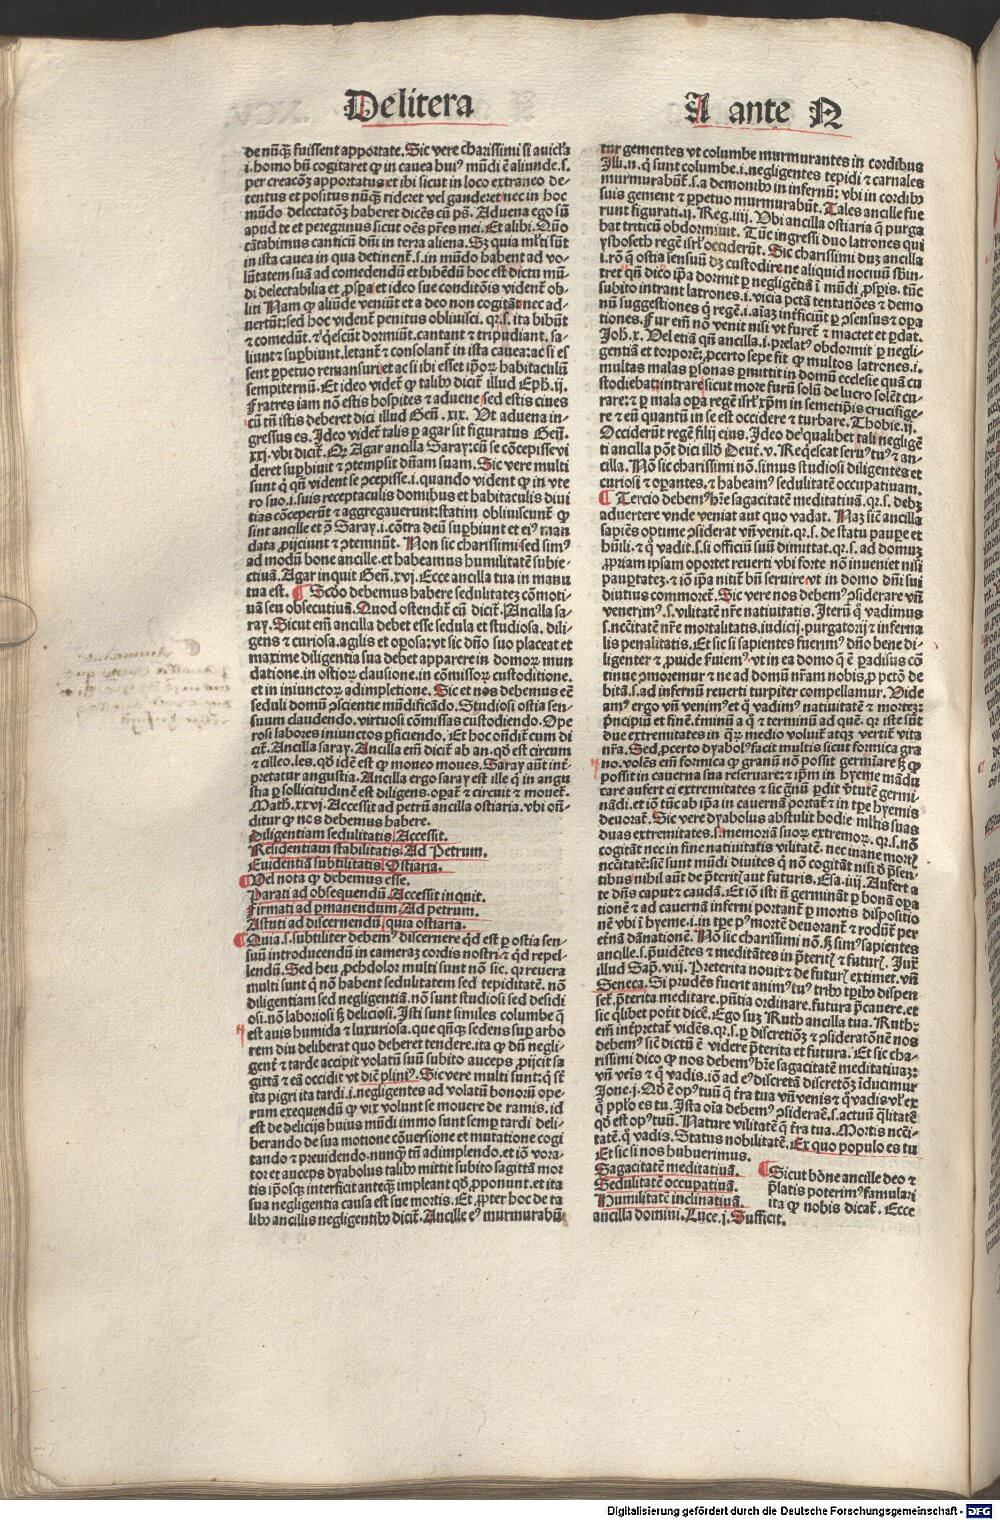 De litera
A ante N
de nūq̄ fuissent apportate. Sic vere charissimi si auicl'a
.i. homo bn̄ cogitaret ꝙ in cauea huiꝰ mūdi ē aliunde .s.
per creacōꝫ apportatus et ibi sicut in loco extraneo de-
tentus et positus nūq̄ rideret vel gauderet nec in hoc
mūdo delectatōꝫ haberet dicēs cū ps̄. Aduena ego sū
apud te et peregrinus sicut oēs pr̄es mei. Et alibi. Quō
cātabimus canticū dn̄i in terra aliena. Sꝫ quia ml'ti sūt
in ista cauea in qua detinent᷑ .s. in mūdo habent ad vo-
lūtatem suā ad comedendū et bibēdū hoc est dictu mū-
di delectabilia et ꝓspa et ideo sue conditōis vident᷑ ob-
liti Nam ꝙ aliūde veniūt et a deo non cogitāt nec ad-
uertūt: sed hoc vident᷑ penitus obliuisci. qꝛ .s. ita bibūt
et comedūt. et q̄escūt dormiūt. cantant et tripudiant. sa-
liunt et supbiunt. letant᷑ et consolant᷑ in ista cauea: ac si es
sent ꝑpetuo remansuri et ac si ibi esset ipoꝝ habitaculū
sempiternū. Et ideo videt᷑ ꝙ talibꝰ dicit᷑ illud Eph. ij.
Fratres iam nō estis hospites et aduene sed estis ciues
cū tn̄ istis deberet dici illud Gen̄. xix. Vt aduena in-
gressus es. Ideo videt᷑ talis ꝑ agar sit figuratus Gen̄.
xxj. vbi dicit᷑. Qꝛ Agar ancilla Saray: cū se cōcepisse vi
deret supbiuit et ꝯtempsit dn̄am suam. Sic vere multi
sunt q̇ qn̄ vident se ꝯcepisse .i. quando vident ꝙ in vte
ro suo .i. suis receptaculis domibus et habitaculis diui
tias cōceperūt et aggregauerunt: statim obliuiscunt᷑ ꝙ
sint ancille et ꝯ̄ Saray .i. cōtra deū supbiunt et eiꝰ man
data ꝓijciunt et ꝯtemnūt. Non sic charissimi sed simꝰ
ad modū bone ancille. et habeamus humilitatē subie-
ctiuā. Agar inquit Gen̄. xvj. Ecce ancilla tua in manu
tua est. ¶ Scdo debemus habere sedulitateꝫ cōmoti-
uā seu obsecutiuā. Quod ostendit᷑ cū dicit᷑. Ancilla sa-
ray. Sicut em̄ ancilla debet esse sedula et studiosa. dili-
gens et curiosa. agilis et oposa: vt sic dn̄o suo placeat et
maxime diligentia sua debet apparere in domoꝝ mun
datione. in ostioꝝ clausione. in cōmissoꝝ custoditione.
et in iniunctoꝝ adimpletione. Sic et nos debemus eē
seduli domū ꝯscientie mūdificādo. Studiosi ostia sen-
suum claudendo. virtuosi cōmissas custodiendo. Ope
rosi labores iniunctos ꝑficiendo. Et hoc on̄dit᷑ cum di
cit᷑. Ancilla saray. Ancilla em̄ dicit᷑ ab an. qd̄ est circum
et cilleo. les. qd̄ idē est ꝙ moueo moues. Saray aūt int᷑
pretatur angustia. Ancilla ergo saray est ille q̇ in angu
stia ꝑ sollicitudinē est diligens. opat᷑ et circuit et mouet᷑.
Math. xxvj. Accessit ad petrū ancilla ostiaria. vbi on̄-
ditur ꝙ nos debemus habere.
Diligentiam sedulitatis Accessit.
Residentiam stabilitatis Ad Petrum.
Euidentiā subtilitatis Ostiaria.
¶ Vel nota ꝙ debemus esse.
Parati ad obsequendū Accessit inquit.
Firmati ad ꝑmanendum Ad petrum.
Astuti ad discernendū quia ostiaria.
¶ Quia .s. subtiliter debemꝰ discernere qd̄ est ꝑ ostia sen-
suū introducendū in cameraꝫ cordis nostri et qd̄ repel-
lendū. Sed heu ꝓchdolor multi sunt nō sic. qꝛ reuera
multi sunt q̇ nō habent sedulitatem sed tepiditatē. nō
diligentiam sed negligentiā. nō sunt studiosi sed desidi
osi. nō laboriosi sꝫ deliciosi. Isti sunt similes columbe q̄
est auis humida et luxuriosa. que qn̄q̄ sedens sup arbo
rem diu deliberat quo deberet tendere. ita ꝙ dū negli-
gent᷑ et tarde accipit volatū suū subito auceps ꝓijcit sa
gittā et eā occidit vt dicit᷑ pliniꝰ. Sic vere multi sunt: q̇ st̄
ita pigri ita tardi .i. negligentes ad volatū bonorū ope-
rum exequendū ꝙ vix volunt se mouere de ramis. id
est de delicijs huius mūdi immo sunt semꝑ tardi deli-
berando de sua motione cōuersione et mutatione cogi
tando et preuidendo. nunqꝫ tn̄ adimplendo. et iō vena-
tor et auceps dyabolus talibꝰ mittit subito sagittā mor
tis ipōsqꝫ interficit anteqꝫ impleant qd̄ ꝓponunt. et ita
sua negligentia causa est sue mortis. Et ꝓpter hoc de ta
libꝰ ancillis negligentibꝰ dicit᷑. Ancille eꝰ murmurabū
tur gementes vt columbe murmurantes in cordibus
Illi .n. q̇ sunt columbe .i. negligentes tepidi et carnales
murmurabūt᷑ .s. a demonibꝰ in infernū: vbi in cordibꝰ
suis gement et ꝑpetuo murmurabūt. Tales ancille fue
runt figurati .ij. Reg. iiij. Vbi ancilla ostiaria q̄ purga
bat triticū obdormiuit. Tūc ingressi duo latrones qui
ysboseth regē isrl' occiderūt. Sic charissimi duꝫ ancilla
.i. rō q̄ ostia sensuū dꝫ custodire ne aliquid nociuū sbin-
tret qn̄ dico ipa dormit ꝑ negligētiā ī mūdi ꝓspis. tūc
subito intrant latrones .i. vicia pctā tentatiōes et demo
nū suggestiones q̇ regē .i. aīaꝫ int᷑ficiūt ꝑ ꝯsensus et opa
tiones. Fur em̄ nō venit nisi vt furet᷑ et mactet et ꝑdat.
Joh. x. Vel etiā qn̄ ancilla .i. prelatꝰ obdormit ꝑ negli-
gentiā et torporē. ꝓcerto sepe fit ꝙ multos latrones .i.
multas malas ꝑsonas ꝑmittit in domū ecclesie quā cu
stodiebat. intrare sicut more furū solū de lucro solēt cu-
rare: et ꝑ mala opa regē isrl' xp̄m in semetipis crucifige-
re et eū quantū in se est occidere et turbare. Thobie. ij.
Occiderūt regē filij eius. Ideo de qualibet tali negligē
ti ancilla pōt dici illd̄ Deut. v. Reqescat seruꝰ tuꝰ et an-
cilla. Nō sic charissimi nō. simus studiosi diligentes et
curiosi et opantes. et habeamꝰ sedulitatē occupatiuam.
¶ Tercio debemꝰ hr̄e sagacitatē meditatiuā. qꝛ .s. debꝫ
aduertere vnde veniat aut quo vadat. Naꝫ sic̄ ancilla
sapiēs optime ꝯsiderat vn̄ venit. qꝛ .s. de statu paupe et
hūili. et q̊ vadit .s. si officiū suū dimittat. qꝛ .s. ad domuꝫ
ꝓpriam ipsam oportet reuerti vbi forte nō inueniet nisi
pauptateꝫ. et iō ipa nitit᷑ bn̄ seruire vt in domo dn̄i sui
diutius commoret᷑. Sic vere nos debemꝰ ꝯsiderare vn̄
venerimꝰ .s. vilitatē nr̄e natiuitatis. Iterū q̊ vadimus
.s. necitatē nr̄e mortalitatis. iudicij. purgatorij et inferna
lis penalitatis. Et sic si sapientes fuerimꝰ dn̄o bene di-
ligenter et ꝓuide ẜuiemꝰ. vt in ea domo q̄ ē ꝑadisus cō
tinue ꝯmoremur et ne ad domū nr̄am nobis ꝓ pctō de-
bitā .s. ad infernū reuerti turpiter compellamur. Vide
amꝰ ergo vn̄ venimꝰ et q̊ vadimꝰ natiuitatē et morteꝫ:
pn̄cipiū et finē. t᷑minū a q̊ et terminū ad quē. qꝛ iste sūt
due extremitates in qꝝ medio voluit᷑ atqꝫ vertit᷑ vita
nr̄a. Sed ꝓcerto dyabolꝰ facit multis sicut formica gra
no. volēs em̄ formica ꝙ granū nō possit germīare sꝫ ꝙ
possit in cauerna sua reseruare: et ipm in hyeme mādu
care aufert ei extremitates et sic gn̄ū ꝑdit v᷑tutē germi-
nādi. et iō tūc ab ipa in cauernā portat᷑ et in tpe hyemis
deuorat᷑. Sic vere dyabolus abstulit hodie ml'tis suas
duas extremitates .s. memoriā suoꝝ extremoꝝ. qꝛ .s. nō
cogitāt nec in fine natiuitatis vilitatē. nec inane mortꝭ
necitatē: sic̄ sunt mūdi diuites q̇ nō cogitāt nisi d̄ pn̄sen-
tibus nihil aūt de pteritꝭ aut futuris. Esa. iiij. Aufert a
te dn̄s caput et caudā. Et iō isti n̄ germināt ꝑ bona opa
tionē et ad cauernā inferni portant᷑ ꝑ mortis dispositio
nē vbi ī hyeme .i. in tpe pꝰ mortē deuorant᷑ et rodūt᷑ per
et᷑nā dānationē. Nō sic charissimi nō. sꝫ simꝰ sapientes
ancille .s. puidētes et meditātes in pteritꝭ et futurꝭ. Iux̄
illud Sap. viij. Preterita nouit et de futurꝭ extimet. vn̄
Seneca. Si prudēs fuerit animꝰ tuꝰ tribꝰ tpibꝰ dispen
set᷑. pterita meditare. pn̄tia ordinare. futura pcauere. et
sic qlibet potit᷑ dicē. Ego suꝫ Ruth ancilla tua. Ruth:
em̄ int᷑pretat᷑ vidēs. qꝛ .s. ꝑ discretiōꝫ et ꝯsideratōnē nos
debemꝰ sic̄ dictū ē videre pterita et futura. Et sic cha-
rissimi dico ꝙ nos debemꝰ hr̄e sagacitatē meditatiuaꝫ:
vn̄ veīs et q̊ vadis. iō ad eꝰ discretā discretōꝫ īducimur
Jone. j. Qd̄ ē opꝰ tuū q̄ t᷑ra tua vn̄ venis et q̊ vadis vl' ex
q̊ pplo es tu. Ista oīa debemꝰ ꝯsiderare .s. actuū qlitatē
qd̄ est opꝰ tuū. Nature vilitatē q̄ t᷑ra tua. Mortis ncci-
tatē. q̊ vadis. Status nobilitatē. Ex quo populo es tu
Et sic si nos habuerimus.
Sagacitatē meditatiuā.
Sedulitatē occupatiuā.
Humilitatē inclinatiuā.
¶ Sicut bōne ancille deo et
platis poterimꝰ famulari
ita ꝙ nobis dicat᷑. Ecce
ancilla domini. Luce. j. Sufficit.
Digitalisierung gefördert durch die Deutsche Forschungsgemeinschaft - DFG